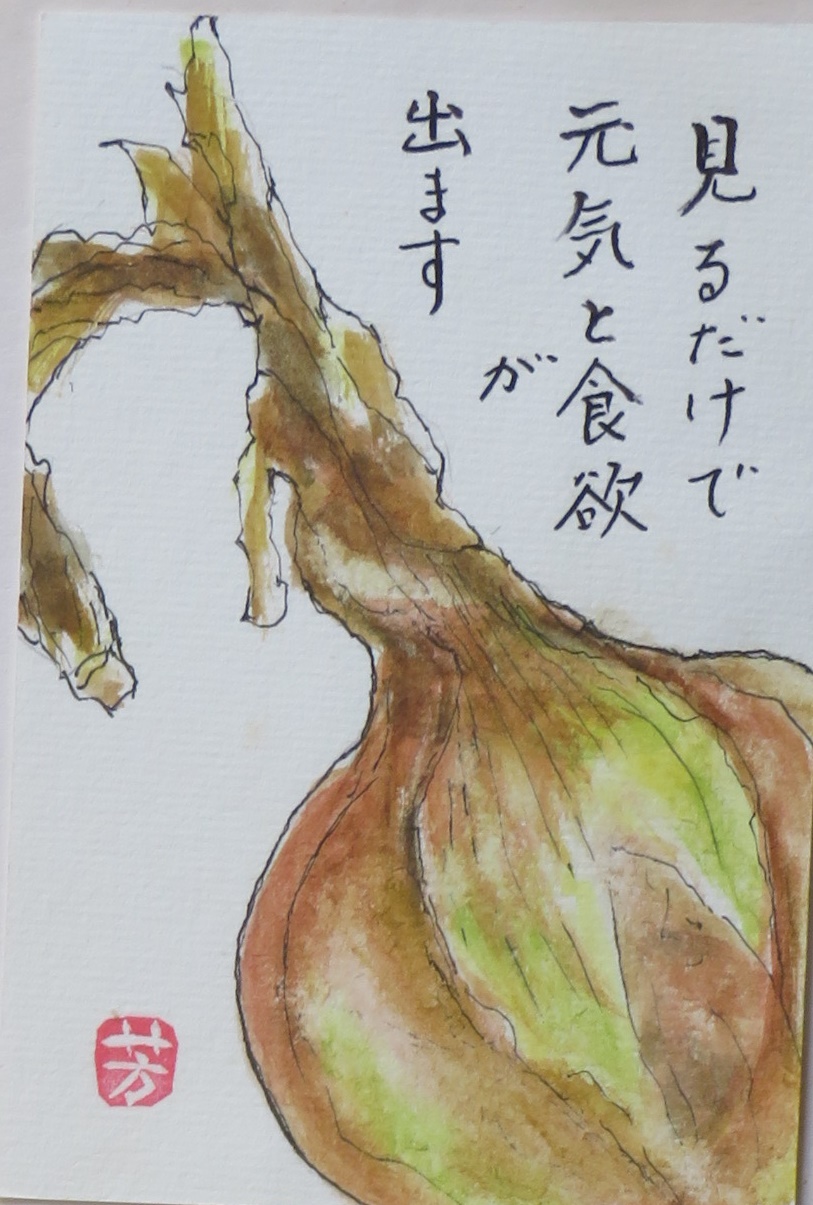 見るだけで
元気と食欲
が
出ます
芳